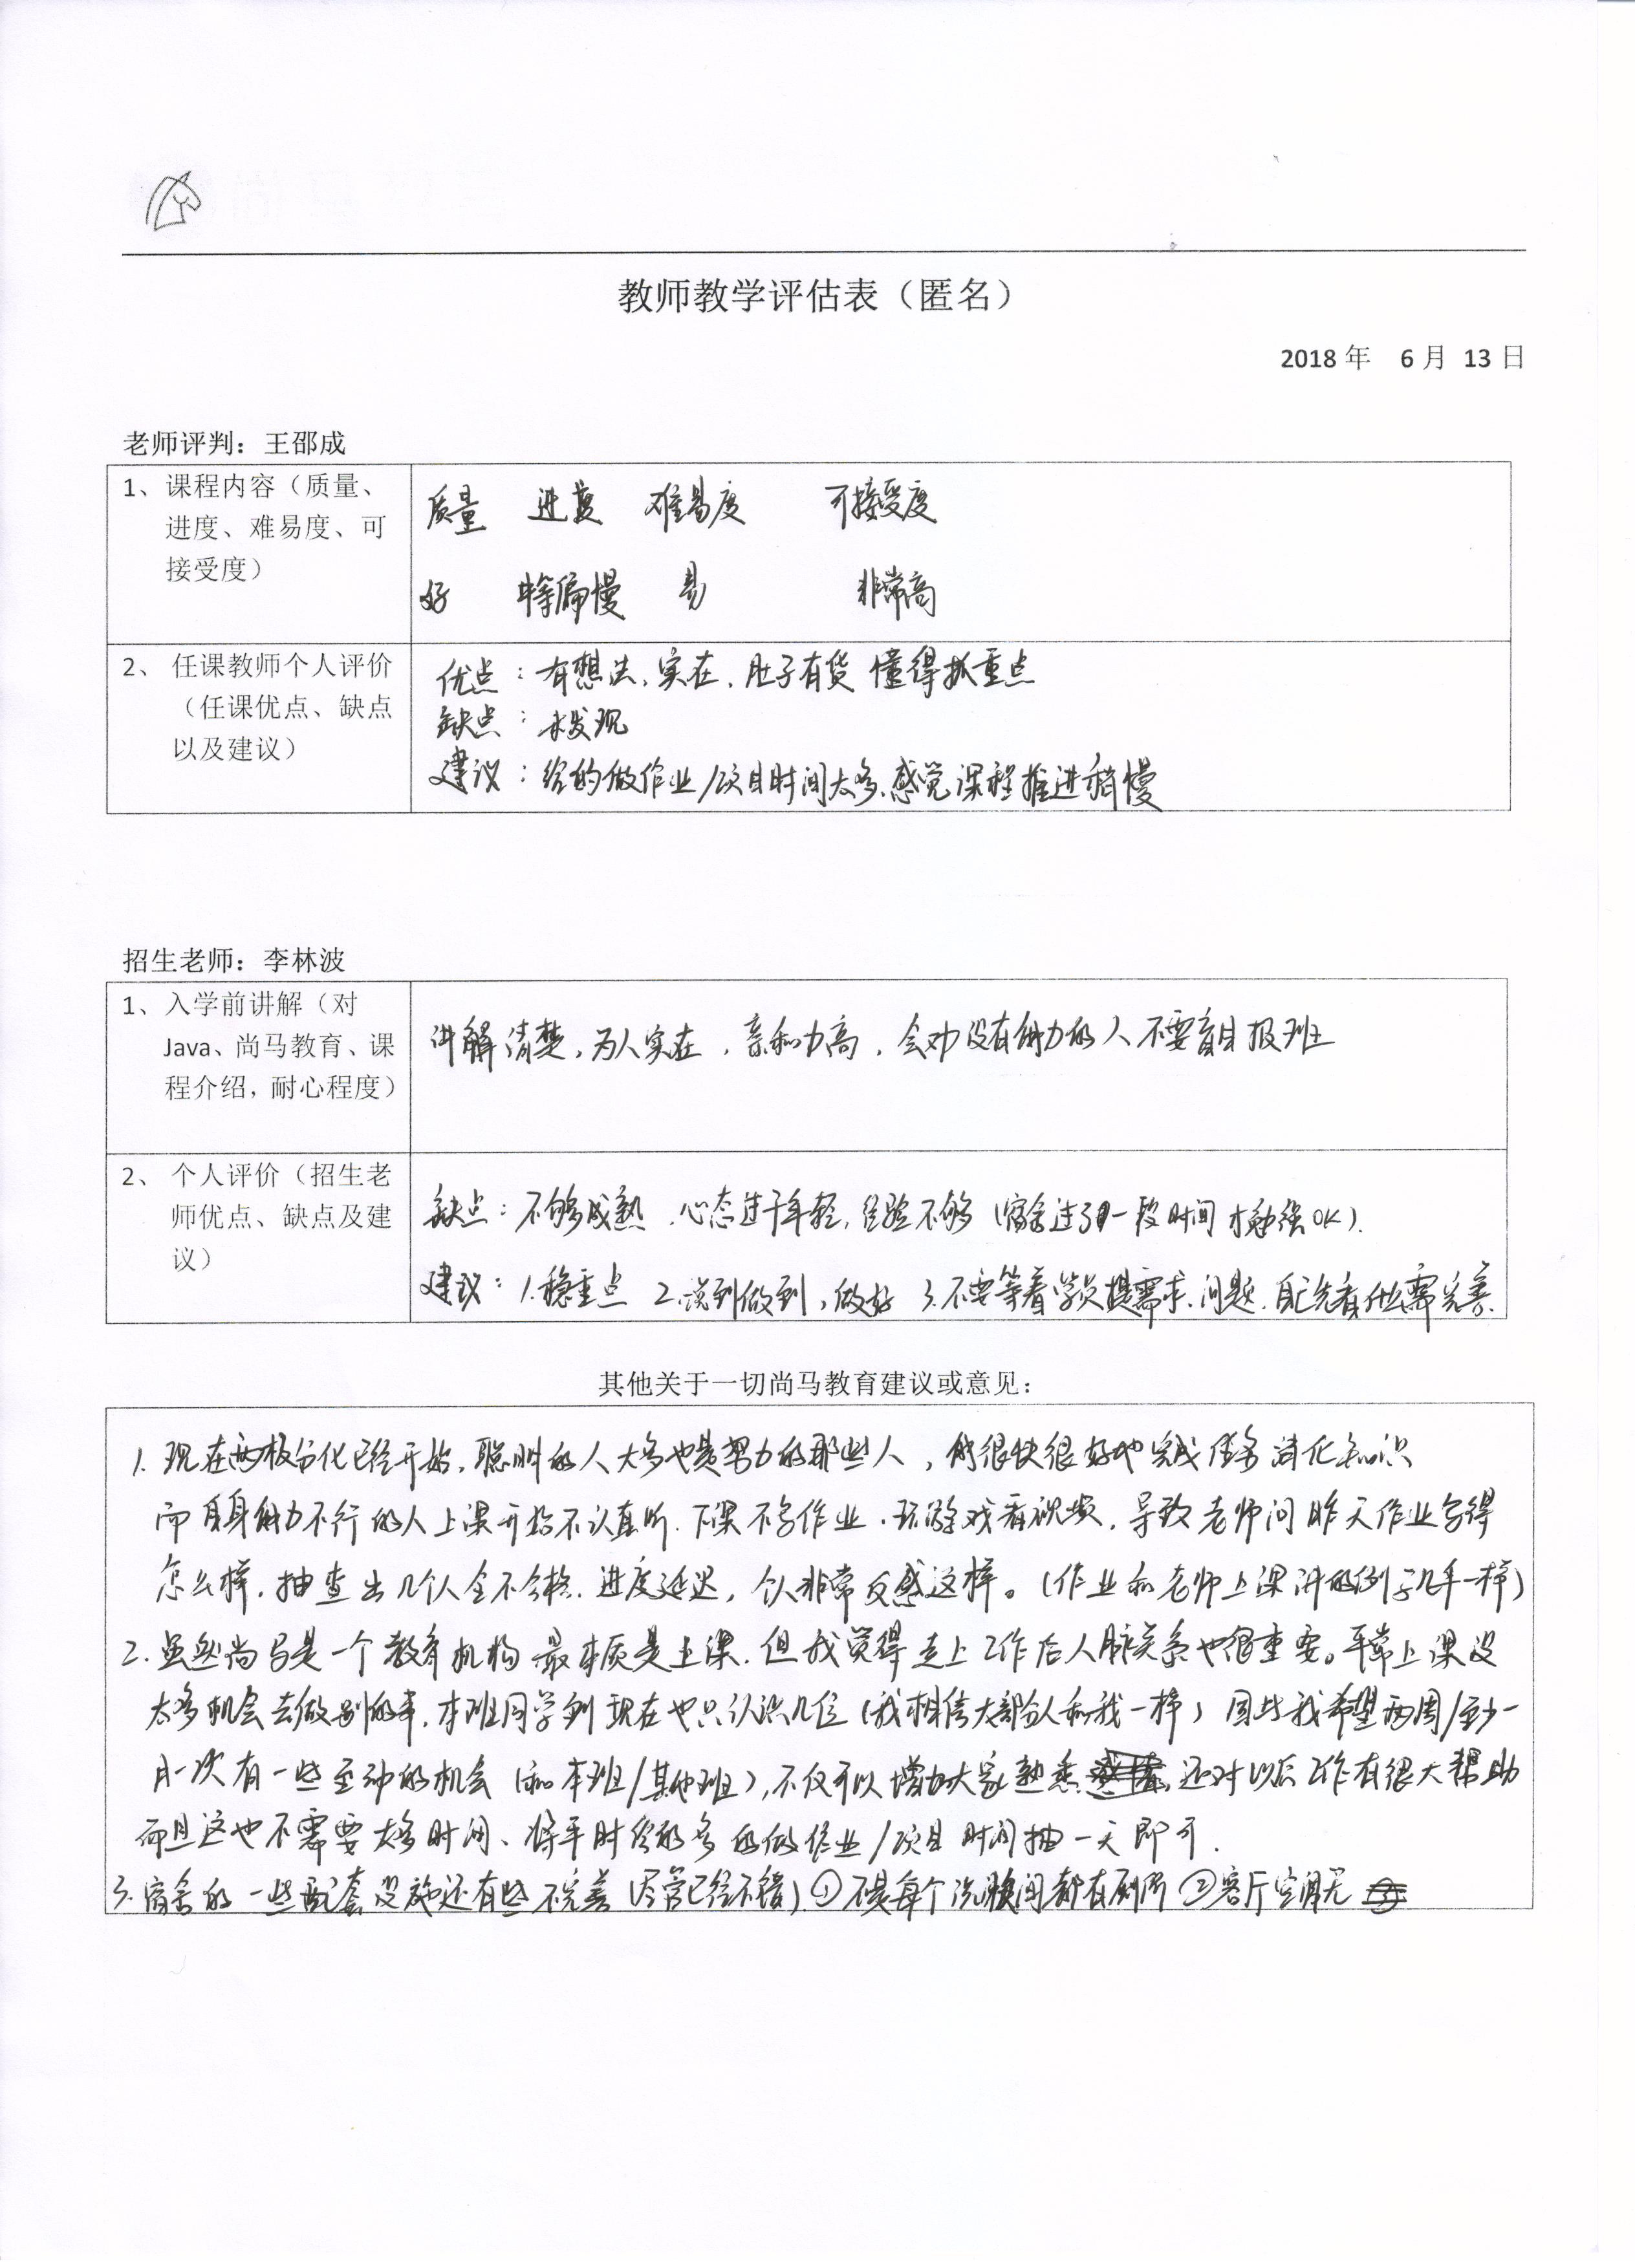 教师教学评估表（匿名）
2018 年 6 月 13 日
老师评判：王邵成
1、课程内容（质量、
进度、难易度、可
接受度）
质量 进度 难易度 可接受度
好 中等偏慢 易 非常高
2、任课教师个人评价
（任课优点、缺点
以及建议）
优点：有想法、实在、肚子有货 懂得抓重点
缺点：未发现
建议：给的做作业/项目时间太多、感觉课程推进稍慢
招生老师：李林波
1、入学前讲解（对
Java、尚马教育、课
程介绍，耐心程度）
讲解清楚，为人实在，亲和力高，会劝没有能力的人不要盲目报班
2、个人评价（招生老
师优点、缺点及建
议）
缺点：不够成熟、心态过于年轻，经验不够（宿舍过了一段时间才勉强OK）.
建议：1.稳重点 2.说到做到，做好 3.不要等着学员提需求、问题，自己先看什么需完善.
其他关于一切尚马教育建议或意见：
1. 现在两极分化已经开始，聪明的人大多也是努力的那些人，能很快很好地完成任务消化知识
而自身能力不行的人上课开始不认真听、下课不写作业、玩游戏看视频，导致老师问昨天作业写得
怎么样，抽查出几个人全不合格，进度延迟，个人非常反感这样。（作业和老师上课讲的例子几乎一样）
2. 虽然尚马是一个教育机构 最本质是上课，但我觉得走上工作后人脉关系也很重要。平常上课没
太多机会去做别的事，本班同学到现在也只认识几位（我相信大部分人和我一样）因此我希望两周/至少一
月一次有一些互动的机会（和本班/其他班），不仅可以增加大家熟悉，还对以后工作有很大帮助
而且这也不需要太多时间、将平时给的多的做作业/项目时间抽一天即可.
3. 宿舍的一些配套设施还有些不完善（尽管已经不错）①不是每个洗漱间都有厕所 ②客厅空调无